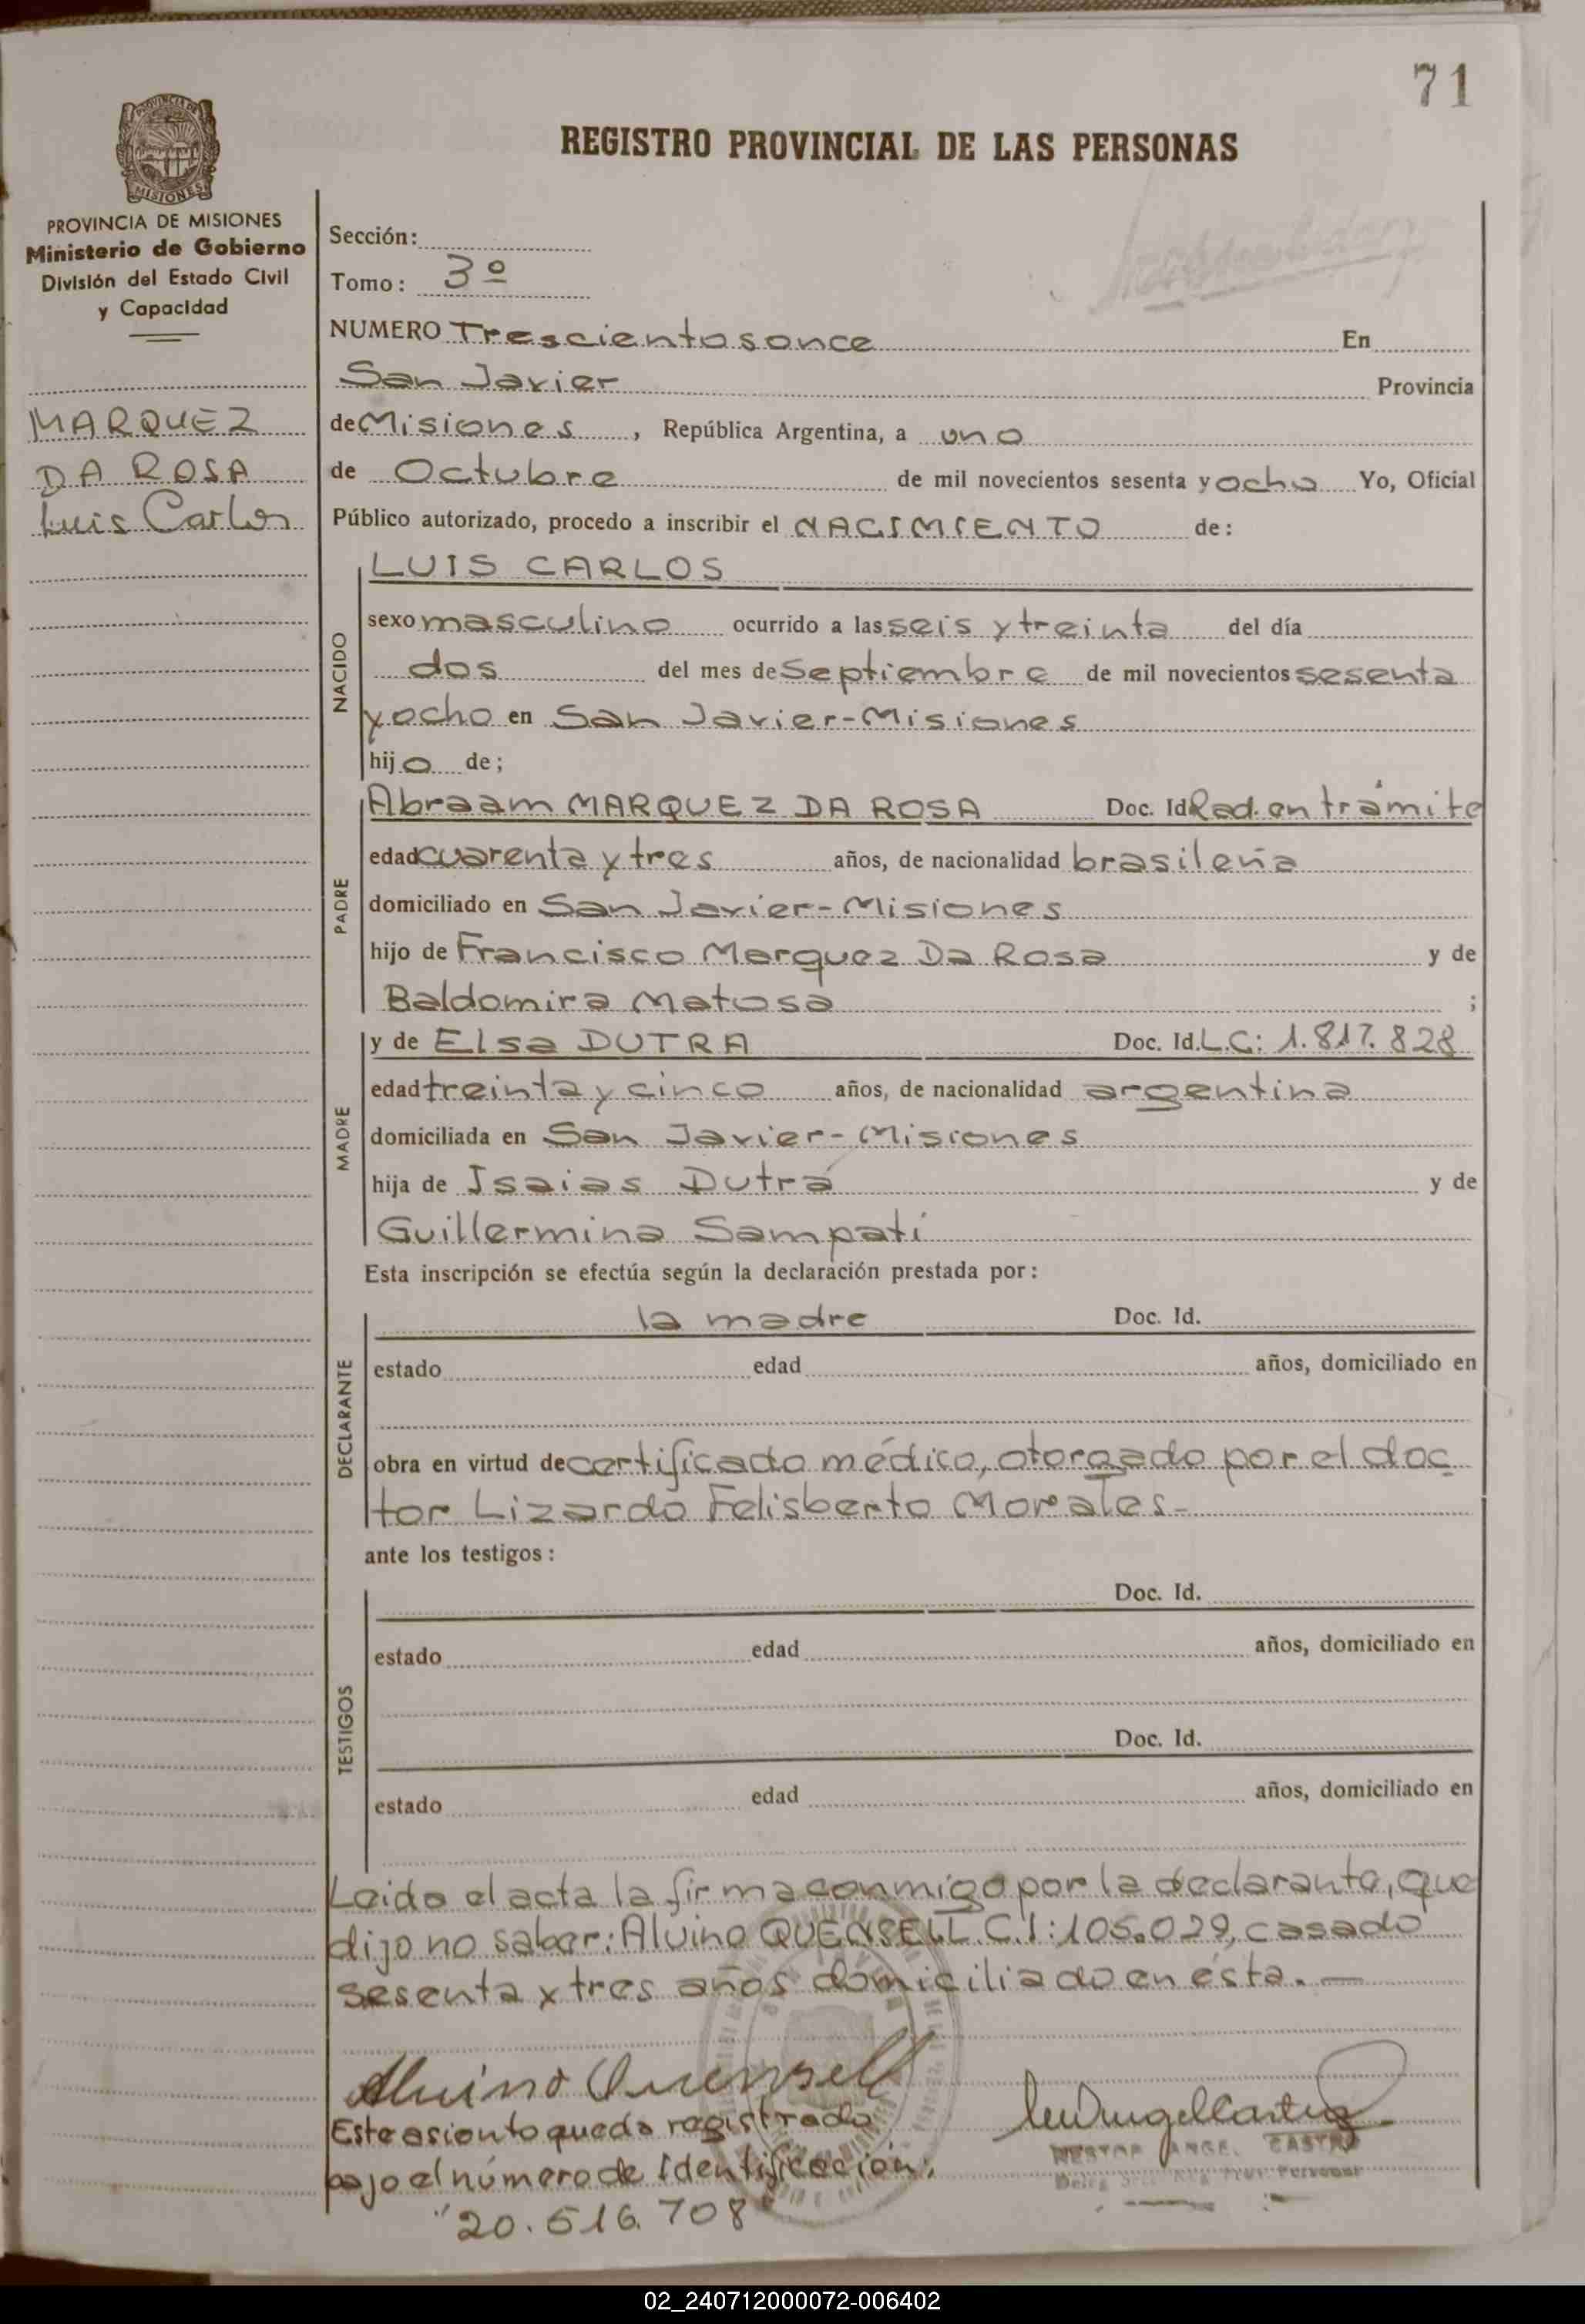 71
PROVINCIA DE MISIONES
REGISTRO PROVINCIAL DE LAS PERSONAS
PROVINCIA DE MISIONES
Ministerio de Gobierno
División del Estado Civil
y Capacidad
MARQUEZ
DA ROSA
Luis Carlos
Sección:
Tomo: 3º
NUMERO Trescientosonce En
San Javier Provincia
de Misiones, República Argentina, a uno
de Octubre de mil novecientos sesenta y ocho Yo, Oficial
Público autorizado, procedo a inscribir el NACIMIENTO de:
NACIDO
LUIS CARLOS
sexo masculino ocurrido a las seis y treinta del día
dos del mes de Septiembre de mil novecientos sesenta
y ocho en San Javier-Misiones
hijo de;
PADRE
Abraam MARQUEZ DA ROSA Doc. Id Rad. en trámite
edad cuarenta y tres años, de nacionalidad brasileña
domiciliado en San Javier-Misiones
hijo de Francisco Marquez Da Rosa y de
Baldomira Matosa ;
MADRE
y de Elsa DUTRA Doc. Id. L.C: 1.817.828
edad treinta y cinco años, de nacionalidad argentina
domiciliada en San Javier-Misiones
hija de Isaias Dutra y de
Guillermina Sampati
Esta inscripción se efectúa según la declaración prestada por:
DECLARANTE
la madre Doc. Id.
estado edad años, domiciliado en
obra en virtud de certificado médico, otorgado por el doc
tor Lizardo Felisberto Morales-
ante los testigos:
TESTIGOS
Doc. Id.
estado edad años, domiciliado en
Doc. Id.
estado edad años, domiciliado en
Leido el acta la firma conmigo por la declarante, que
dijo no saber: Alvino QUENSELL C.I: 105.029, casado
sesenta y tres años domiciliado en ésta. —
Alvino Quensell
Este asiento queda registrado
bajo el número de Identificación:
"20.516.708"
NESTOR ANGEL CASTRO
02_240712000072-006402